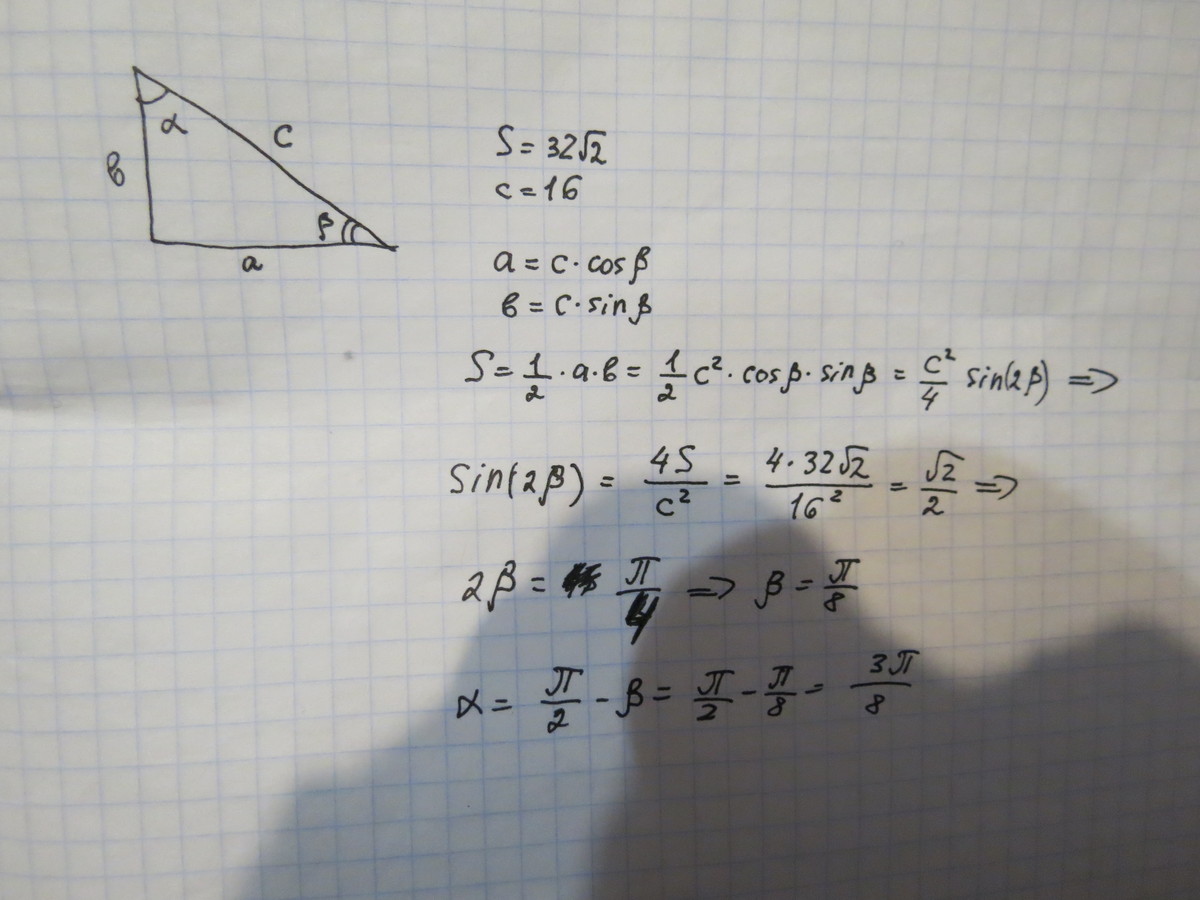 α
c
в
β
a
S = 32√2
c = 16
a = c · cosβ
в = c · sinβ
S = 1/2 · a · в = 1/2 c² · cosβ · sinβ = c²/4 sin(2β) =>
Sin(2β) = 4S/c² = 4·32√2/16² = √2/2 =>
2β = π/4 => β = π/8
α = π/2 - β = π/2 - π/8 = 3π/8